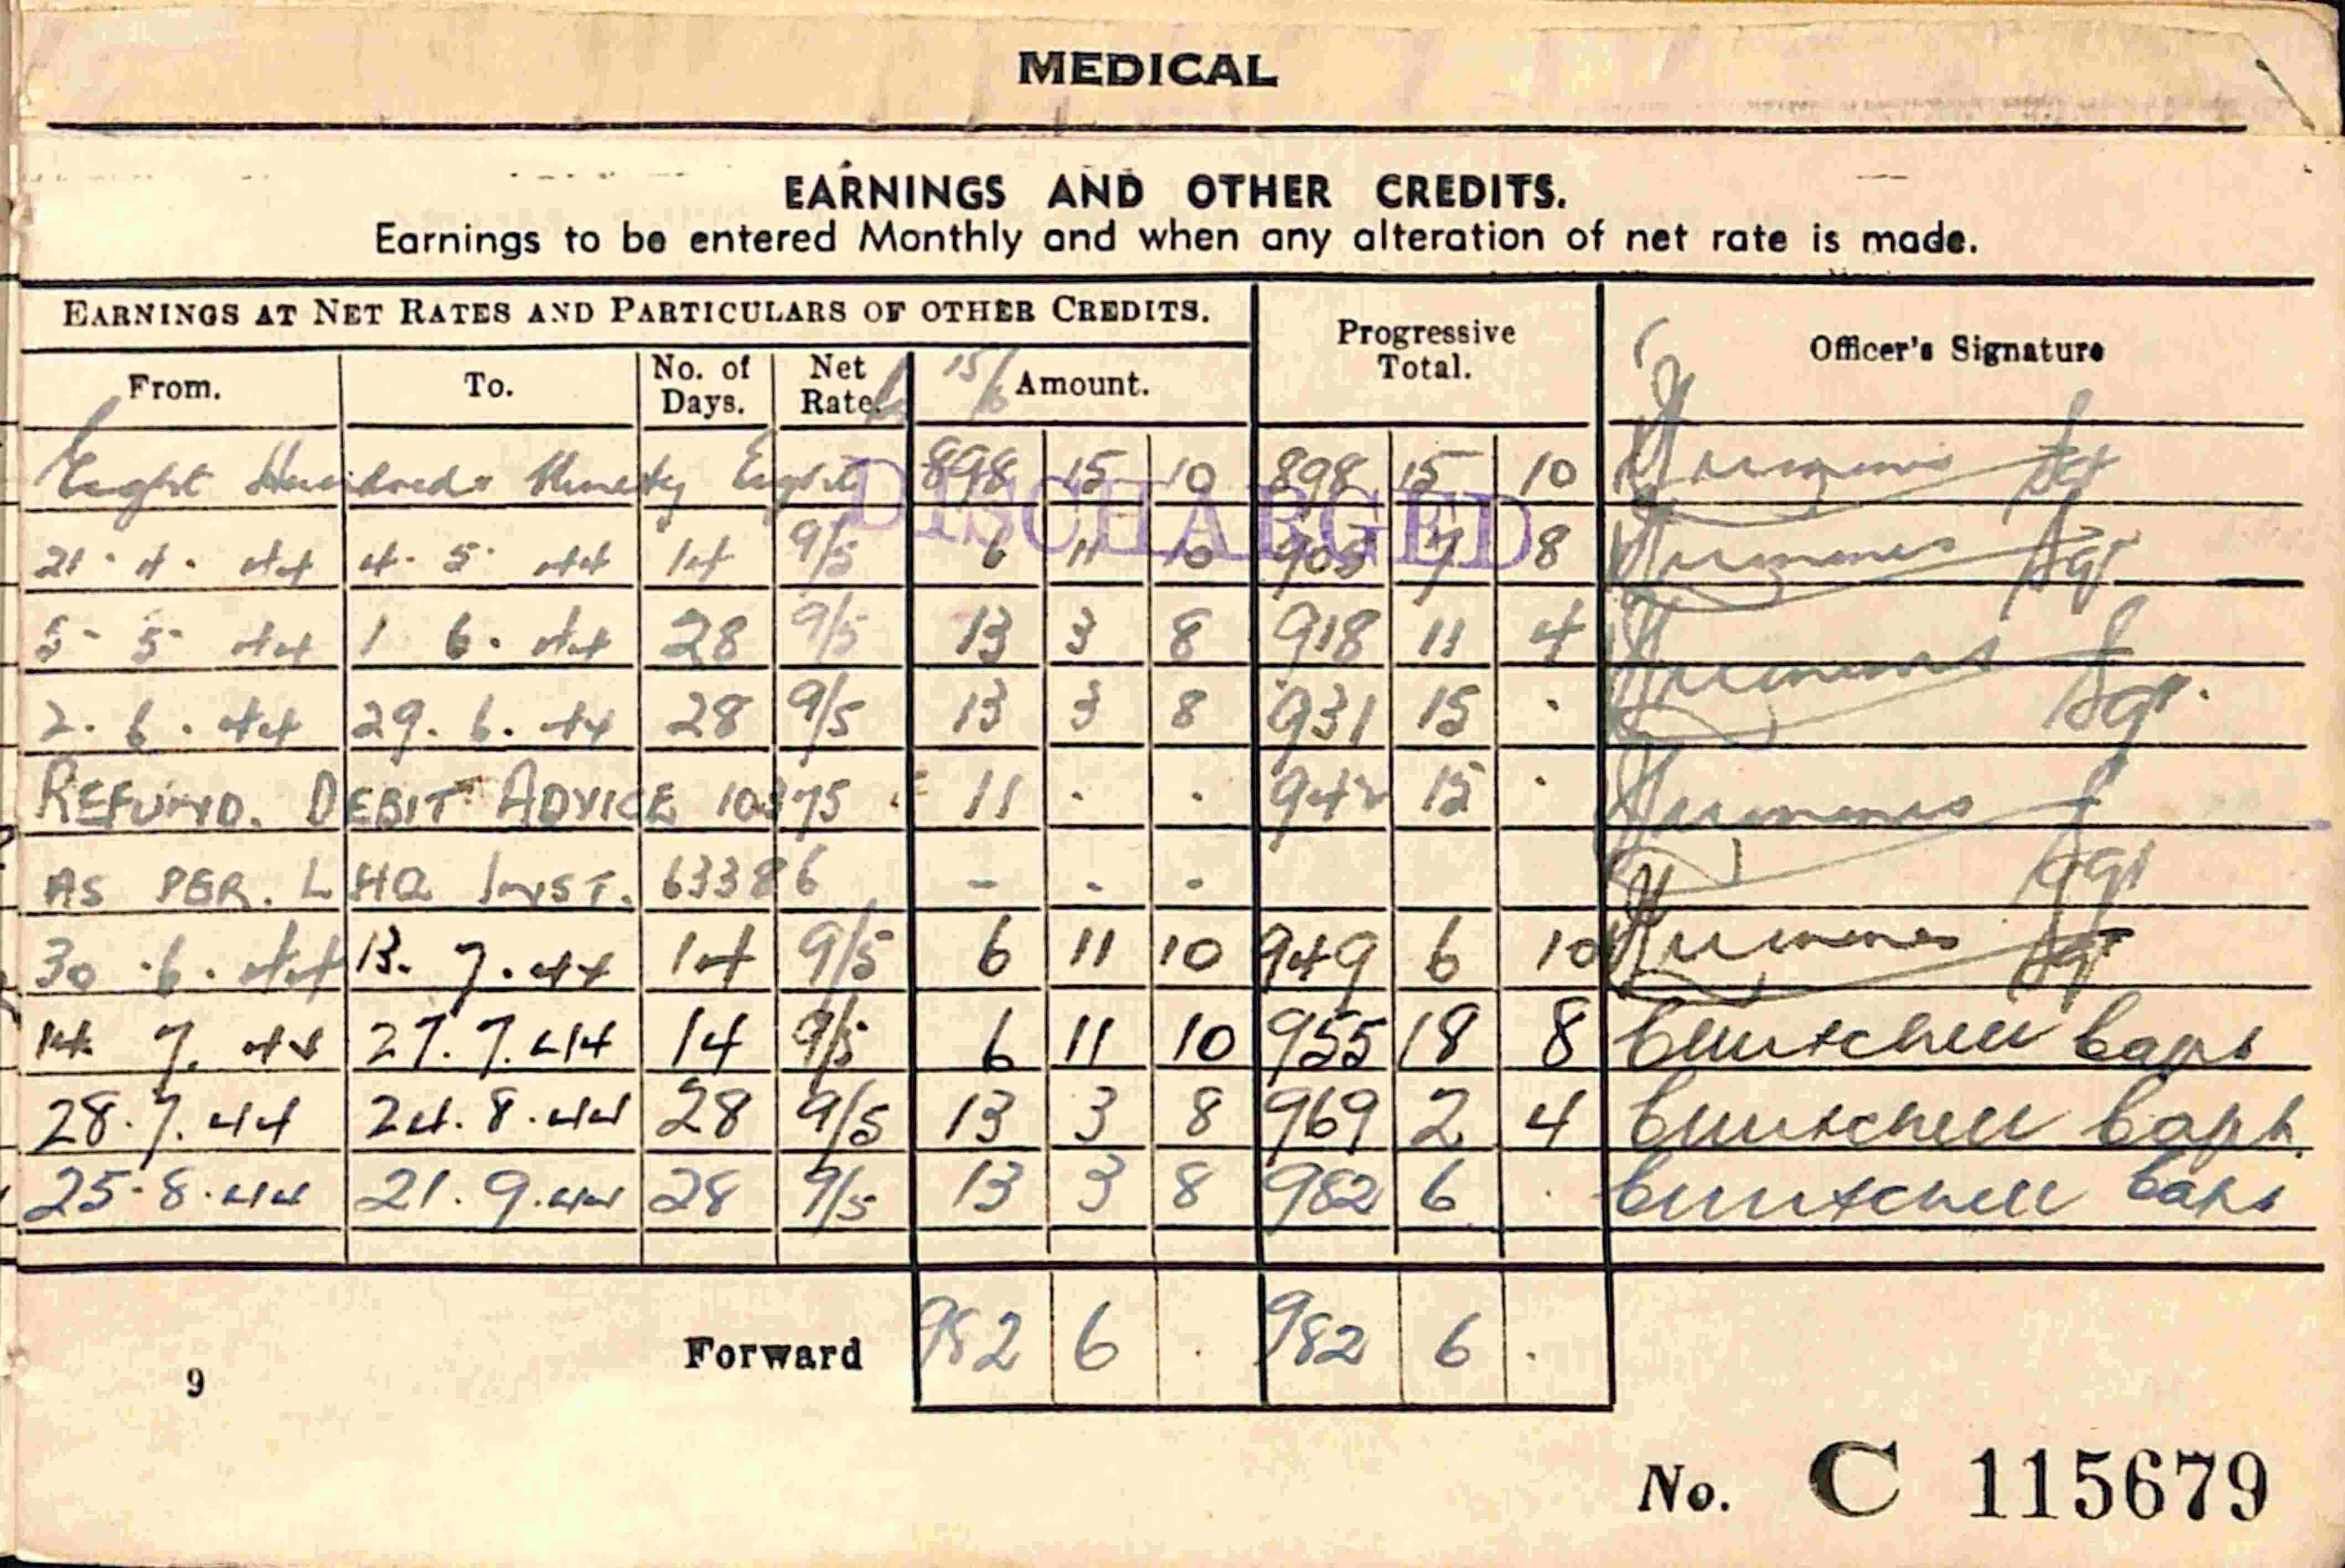 MEDICAL
EARNINGS AND OTHER CREDITS.
Earnings to be entered Monthly and when any alteration of net rate is made.
EARNINGS AT NET RATES AND PARTICULARS OF OTHER CREDITS. Progressive Total. Officer's Signature
From. To. No. of Days. Net Rate. 15/6 Amount.
Eight Hundred & Ninety Eight 898 15 10 898 15 10 Sgt
DISCHARGED
21. 4. 44 4. 5. 44 14 9/5 6 11 10 905 7 8 Sgt
5. 5. 44 1 6. 44 28 9/5 13 3 8 918 11 4
2. 6. 44 29. 6. 44 28 9/5 13 3 8 931 15 . Sgt.
REFUND. DEBIT ADVICE 10375 11 . . 942 15 .
AS PER. LHQ INST. 63386 - . . Sgt
30. 6. 44 13. 7. 44 14 9/5 6 11 10 949 6 10 Sgt
14. 7. 44 27. 7. 44 14 9/5 6 11 10 955 18 8 Capt
28. 7. 44 24. 8. 44 28 9/5 13 3 8 969 2 4 Capt.
25. 8. 44 21. 9. 44 28 9/5 13 3 8 982 6 . Capt
Forward 982 6 . 982 6 .
9
No. C 115679